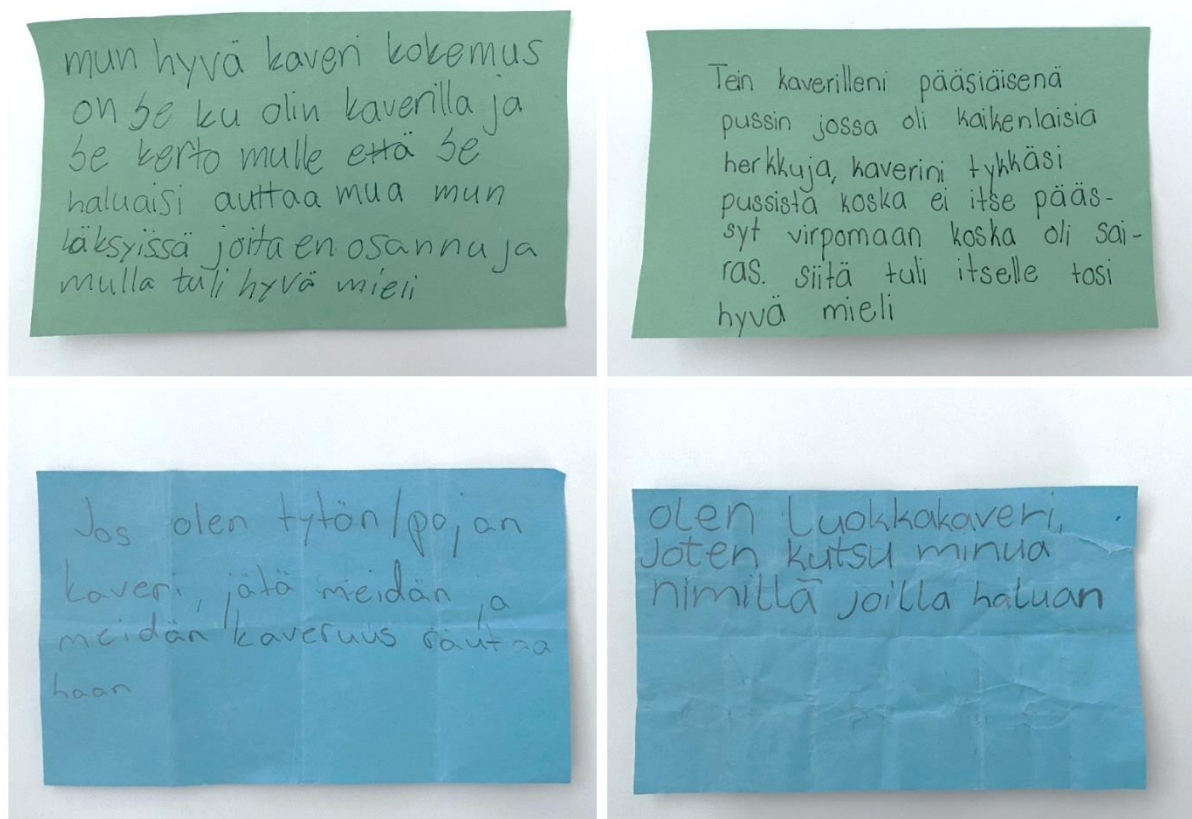 mun hyvä kaveri kokemus
on se ku olin kaverilla ja
se kerto mulle että se
haluaisi auttaa mua mun
läksyissä joita en osannu ja
mulla tuli hyvä mieli
Tein kaverilleni pääsiäisenä
pussin jossa oli kaikenlaisia
herkkuja, kaverini tykkäsi
pussista koska ei itse pääs-
syt virpomaan koska oli sai-
ras. siitä tuli itselle tosi
hyvä mieli
Jos olen tytön/pojan
kaveri, jätä meidän ja
meidän kaveruus rautaa
haan
olen luokkakaveri,
joten kutsu minua
nimillä joilla haluan